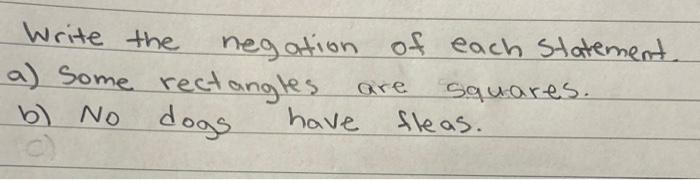 Write the negation of each statement.
a) Some rectangles are squares.
b) No dogs have fleas.
c)